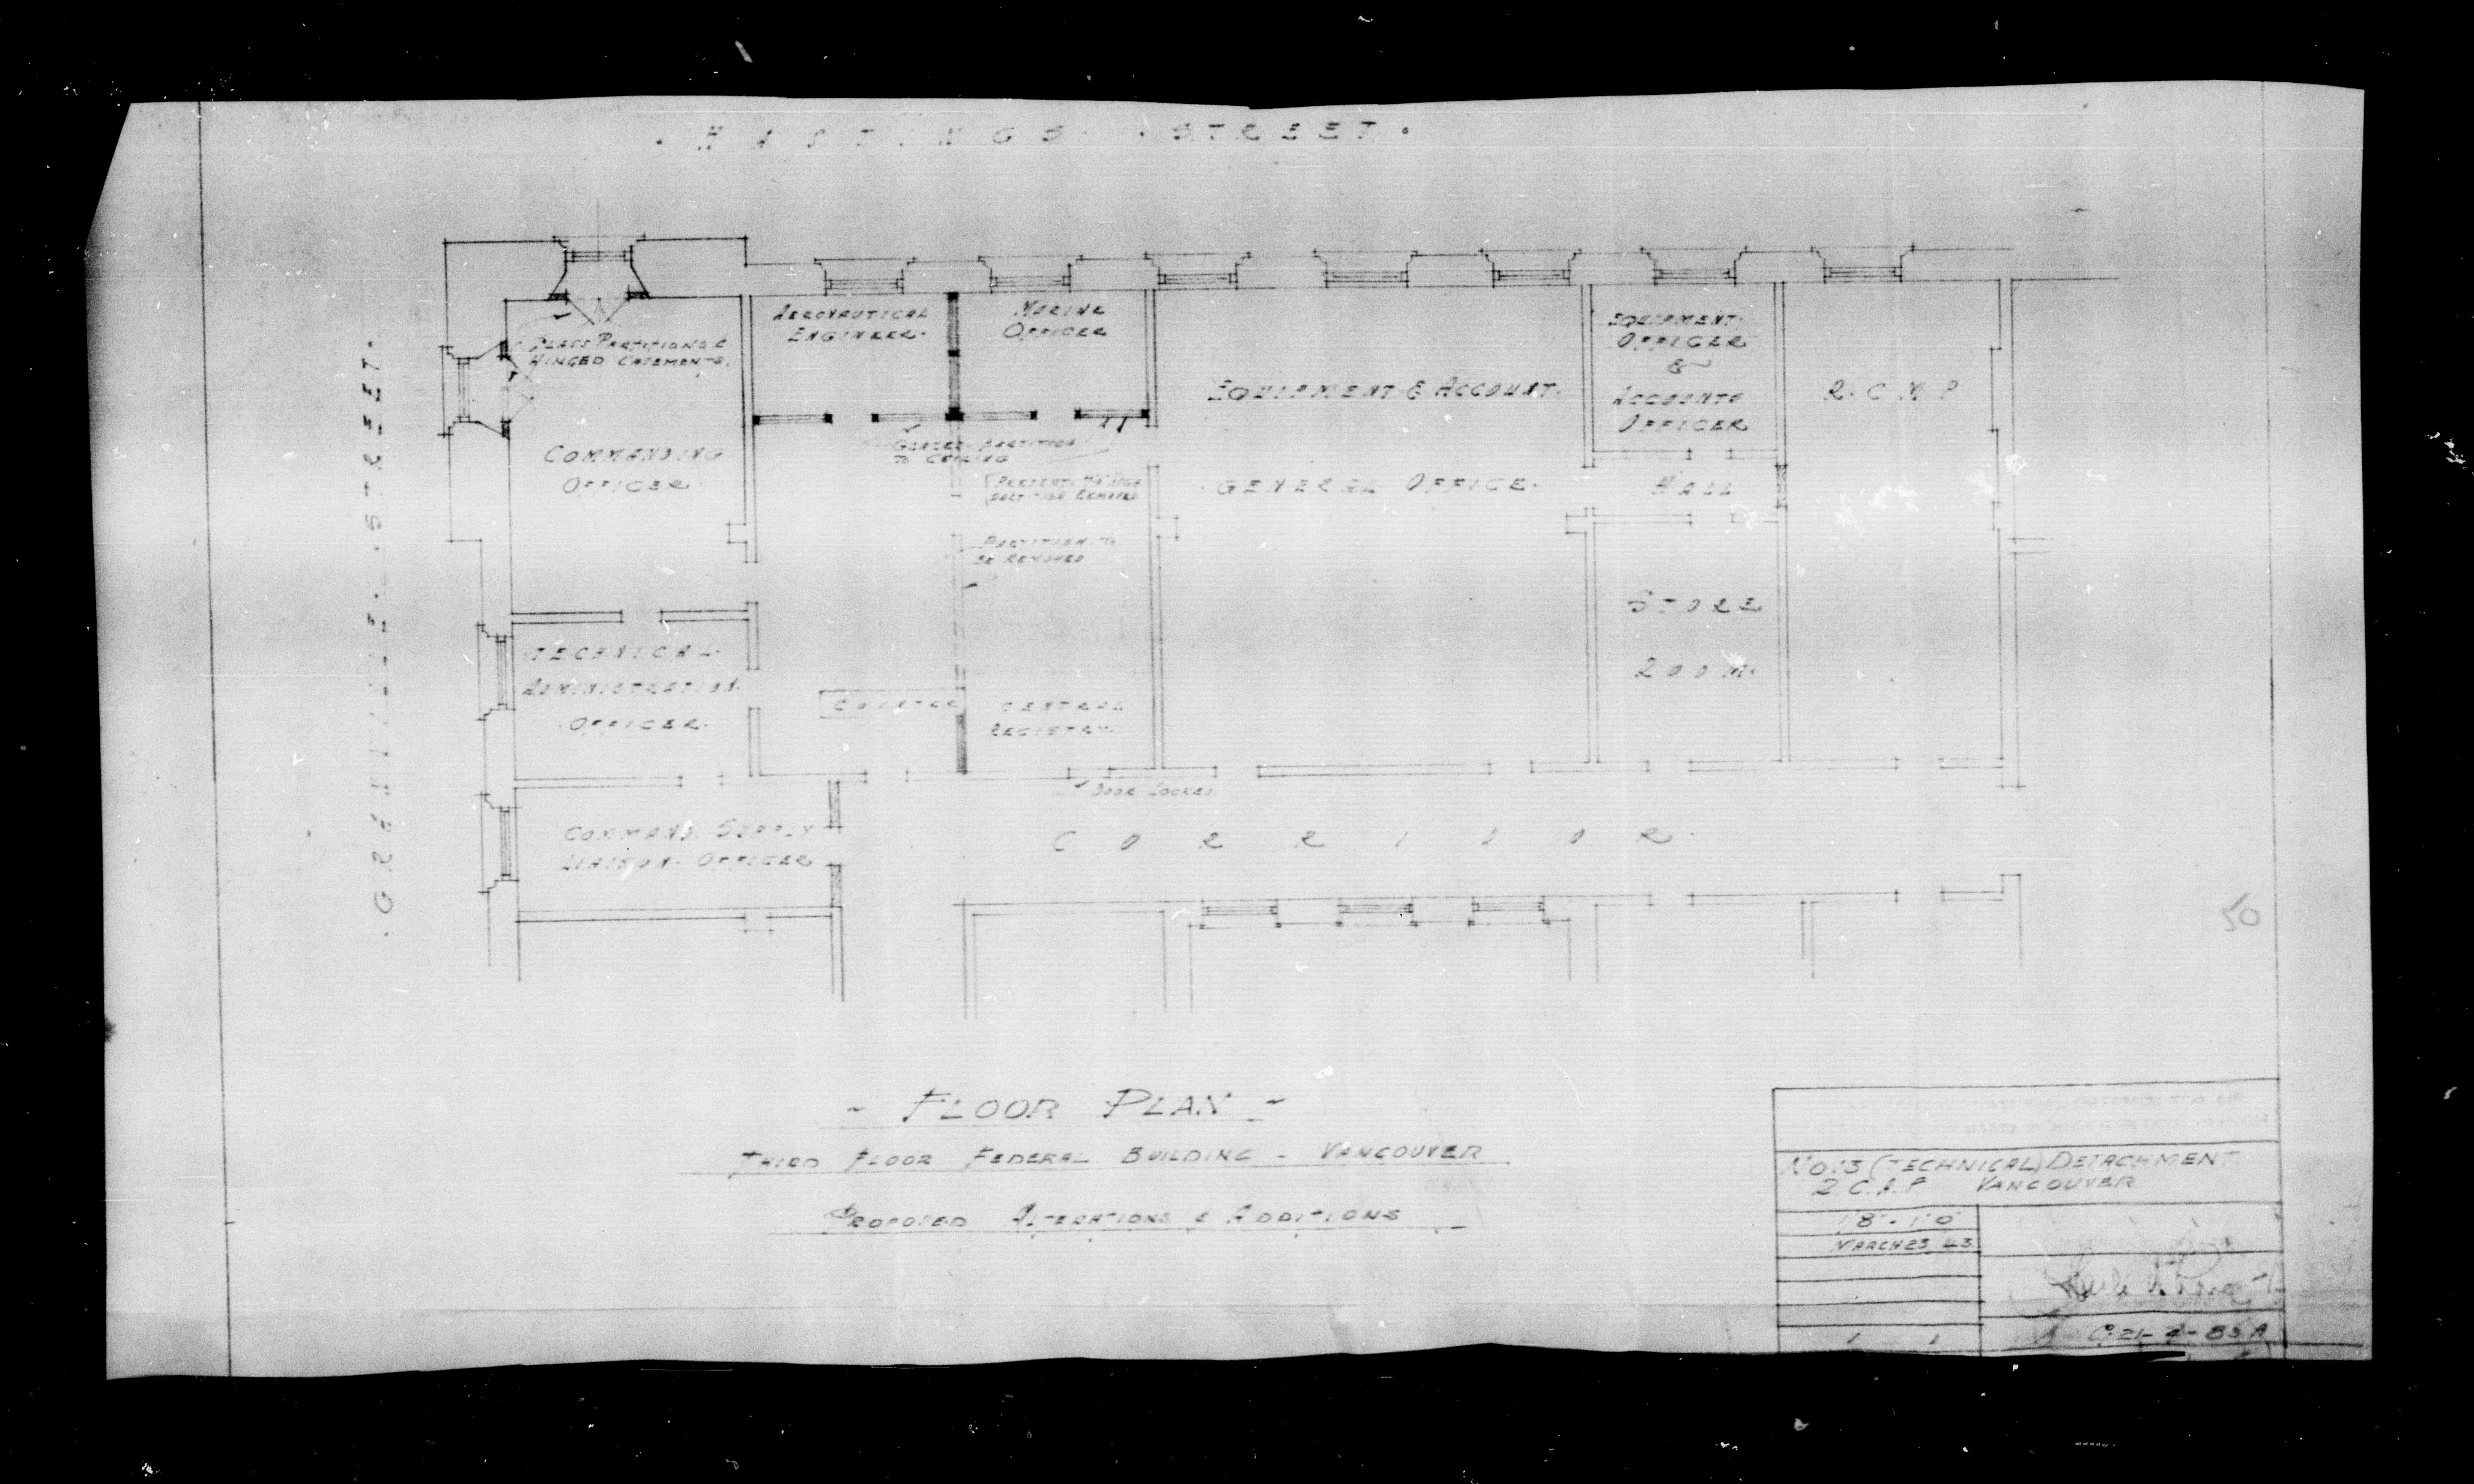 · HASTINGS · STREET ·
· GRANVILLE · STREET ·
GLASS PARTITIONS &
HINGED CASEMENTS.
COMMANDING
OFFICER.
AERONAUTICAL
ENGINEER.
MARINE
OFFICER
GLAZED PARTITION
TO CEILING
PARTITION REMOVED
PARTITION TO
BE REMOVED
EQUIPMENT & ACCOUNT.
GENERAL OFFICE.
EQUIPMENT
OFFICER
&
ACCOUNTS
OFFICER
HALL
STORE
ROOM.
R.C.M.P
TECHNICAL
ADMINISTRATION
OFFICER.
COUNTER
CENTRAL
REGISTRY.
DOOR LOCKED.
COMMAND SUPPLY
LIAISON OFFICER
CORRIDOR
50
- FLOOR PLAN -
THIRD FLOOR FEDERAL BUILDING - VANCOUVER
PROPOSED ALTERATIONS & ADDITIONS
No. 3 (TECHNICAL) DETACHMENT
R.C.A.F VANCOUVER
1/8" - 1'0"
MARCH 23 43
1 1
C-21-4-83 A